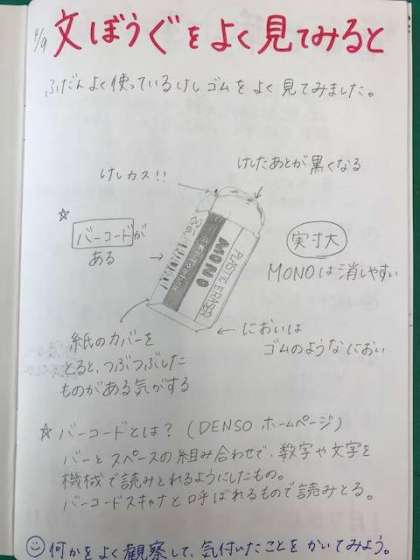 4/9
文ぼうぐをよく見てみると
ふだんよく使っているけしゴムをよく見てみました。
けしカス!!
けしたあとが黒くなる
☆
バーコードが
ある
MONO
PLASTIC ERASER
実寸大
MONOは消しやすい
紙のカバーを
とると、つぶつぶした
ものがある気がする
においは
ゴムのようなにおい
☆ バーコードとは?(DENSO ホームページ)
バーとスペースの組み合わせで、数字や文字を
機械で読みとれるようにしたもの。
バーコードスキャナと呼ばれるもので読みとる。
何かをよく観察して、気付いたことをかいてみよう。